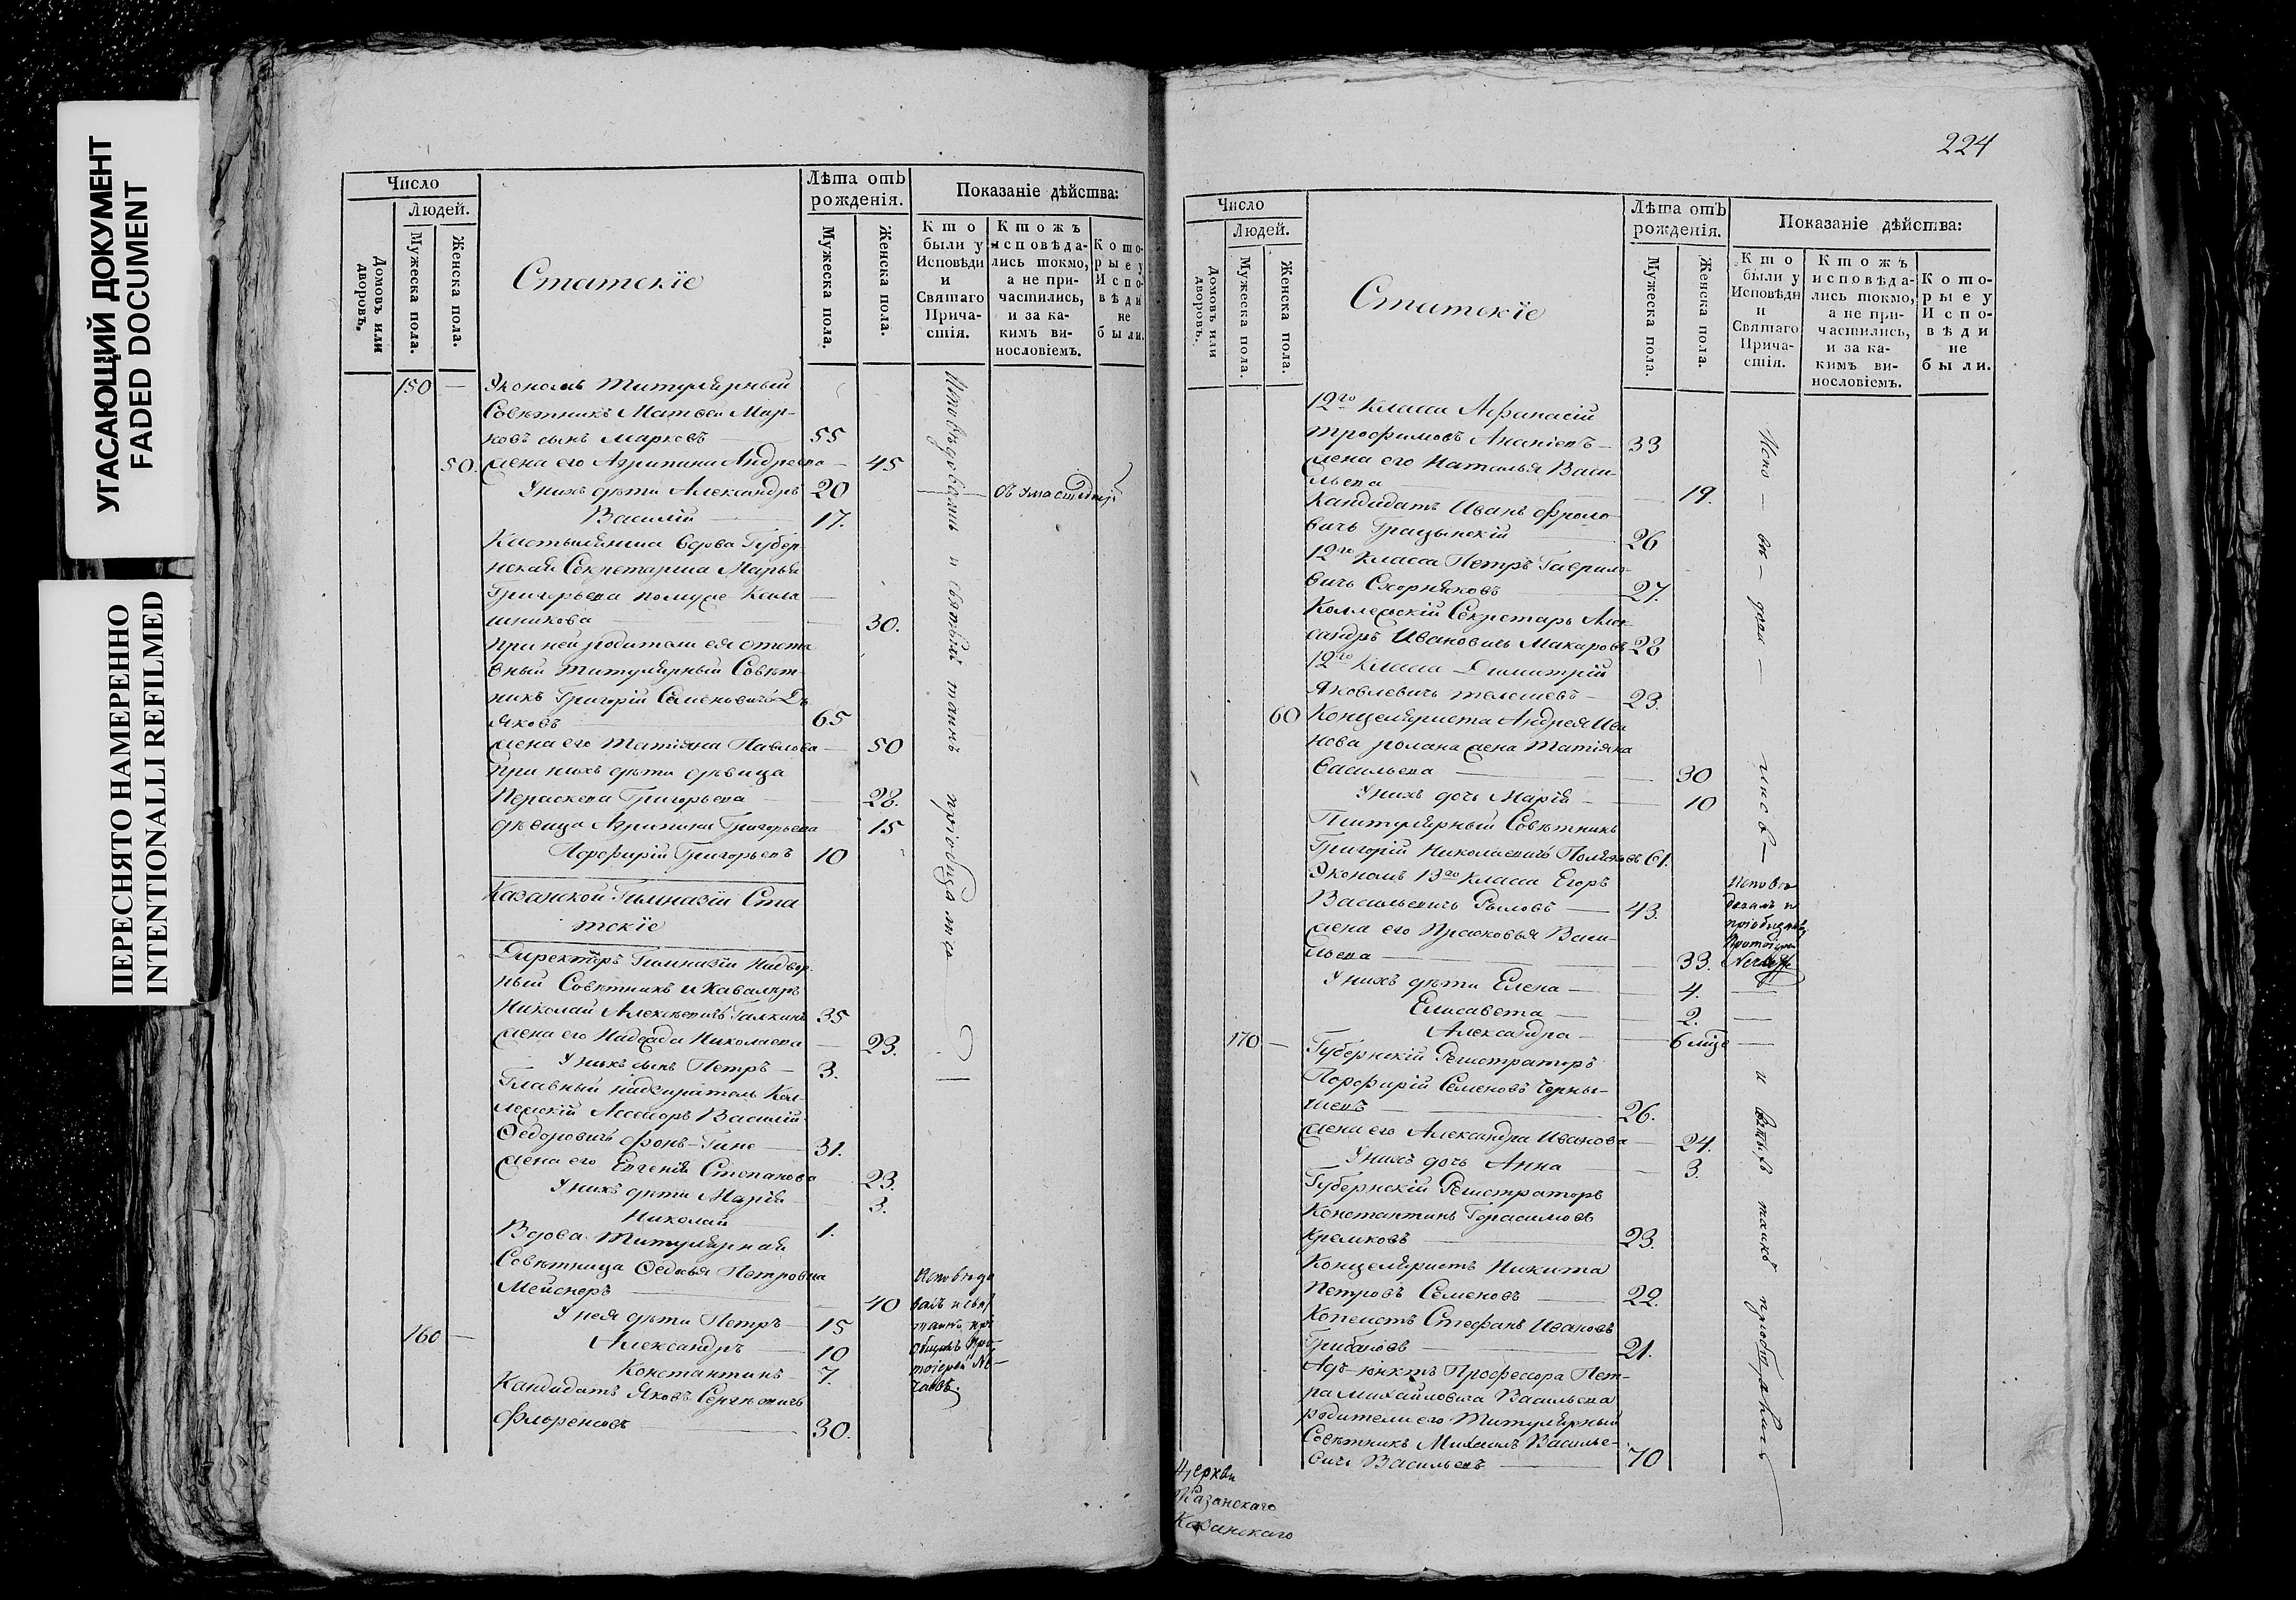 УГАСАЮЩИЙ ДОКУМЕНТ
FADED DOCUMENT
ПЕРЕСНЯТО НАМЕРЕННО
INTENTIONALLI REFILMED
Число
Людей.
Домовъ или дворовъ.
Мужеска пола.
Женска пола.
Статскїе
Лѣта отъ рожденія.
Мужеска пола.
Женска пола.
Показаніе дѣйства:
Кто были у Исповѣди и Святаго Причастія.
Ктожъ исповѣдались токмо, а не причастились, и за какимъ винословіемъ.
Которые у Исповѣди не были.
150 — Экономъ Титулярный
Совѣтникъ Матвей Мар-
ковъ сынъ Марковъ — 55
50. жена его Агрипина Андреева — 45
У нихъ дѣти Александръ 20
Василій — 17.
Кастелянша вдова Губер-
нская Секретарша Марья
Григорьева по мужѣ Кала
шникова — 30.
При ней родители ея отста
вный Титулярный Совѣт-
никъ Григорій Семеновичь Дь
яковъ 65
жена его Татіяна Павлова — 50
При нихъ дѣти дѣвица
Параскева Григорьева — 28.
дѣвица Агрипина Григорьева 15
Порфирій Григорьевъ 10
Казанской Гимназіи Ста
тскіе
Директоръ Гимназіи Надвор
ный Совѣтникъ и Кавалеръ
Николай Алексѣевичь Галкинъ 35
жена его Надежда Николаева — 23.
У нихъ сынъ Петръ — 3.
Главный надзиратель Кол-
лежскій Ассесоръ Василій
Ѳедоровичь фонъ-Гине — 31.
жена его Евгенія Степанова 23.
У нихъ дѣти Марія — 3.
Николай 1.
Вдова Титулярная
Совѣтница Ѳедосья Петровна
Мейснеръ — 40
У нея дѣти Петръ — 15
160 — Александръ — 10
Константинъ — 7
Кандидатъ Яковъ Сергѣевичь
Флоренсовъ — 30.
Исповѣдованы и святыхъ таинъ пріобщались
224
Число
Людей.
Домовъ или дворовъ.
Мужеска пола.
Женска пола.
Статскїе
Лѣта отъ рожденія.
Мужеска пола.
Женска пола.
Показаніе дѣйства:
Кто были у Исповѣди и Святаго Причастія.
Ктожъ исповѣдались токмо, а не причастились, и за какимъ винословіемъ.
Которые у Исповѣди не были.
12го Класса Афанасій
Трофимовъ Ананіевъ — 33
жена его Наталья Васи-
льева — 19.
Кандидатъ Иванъ Фроло
вичь Грацынскій 26
12го Класса Петръ Гаврило
вичь Скорняковъ 27
Коллежскій Секретарь Алек
сандръ Ивановичь Макаровъ 28
12го Класса Димитрій
Яковлевичь Телешевъ — 23.
60 Концеляриста Андрея Ива
нова Романа жена Татіяна
Васильева — 30
У нихъ дочь Марія — 10
Титулярный Совѣтникъ
Григорій Николаевичь Поляковъ 61.
Экономъ 13го Класса Егоръ
Васильевичь Рыловъ — 43.
жена его Прасковья Васи-
льева — 33.
У нихъ дѣти Елена — 4.
Елисавета — 2.
Александра — 6 мцѣ
170 — Губернскій Регистраторъ
Порфирій Семеновъ Черны-
шевъ — 26.
жена его Александра Иванова — 24.
У нихъ дочь Анна — 3.
Губернскій Регистраторъ
Константинъ Герасимовъ
Кремковъ — 23.
Концеляристъ Никита
Петровъ Семеновъ — 22.
Копеистъ Стефанъ Ивановъ
Грибановъ — 21.
Адъ-юнктъ Профессора Пет-
ра Михайловича Васильева
родители его Титулярный
Совѣтникъ Михаилъ Василье-
вичь Васильевъ — 70
Церкви
Казанскаго